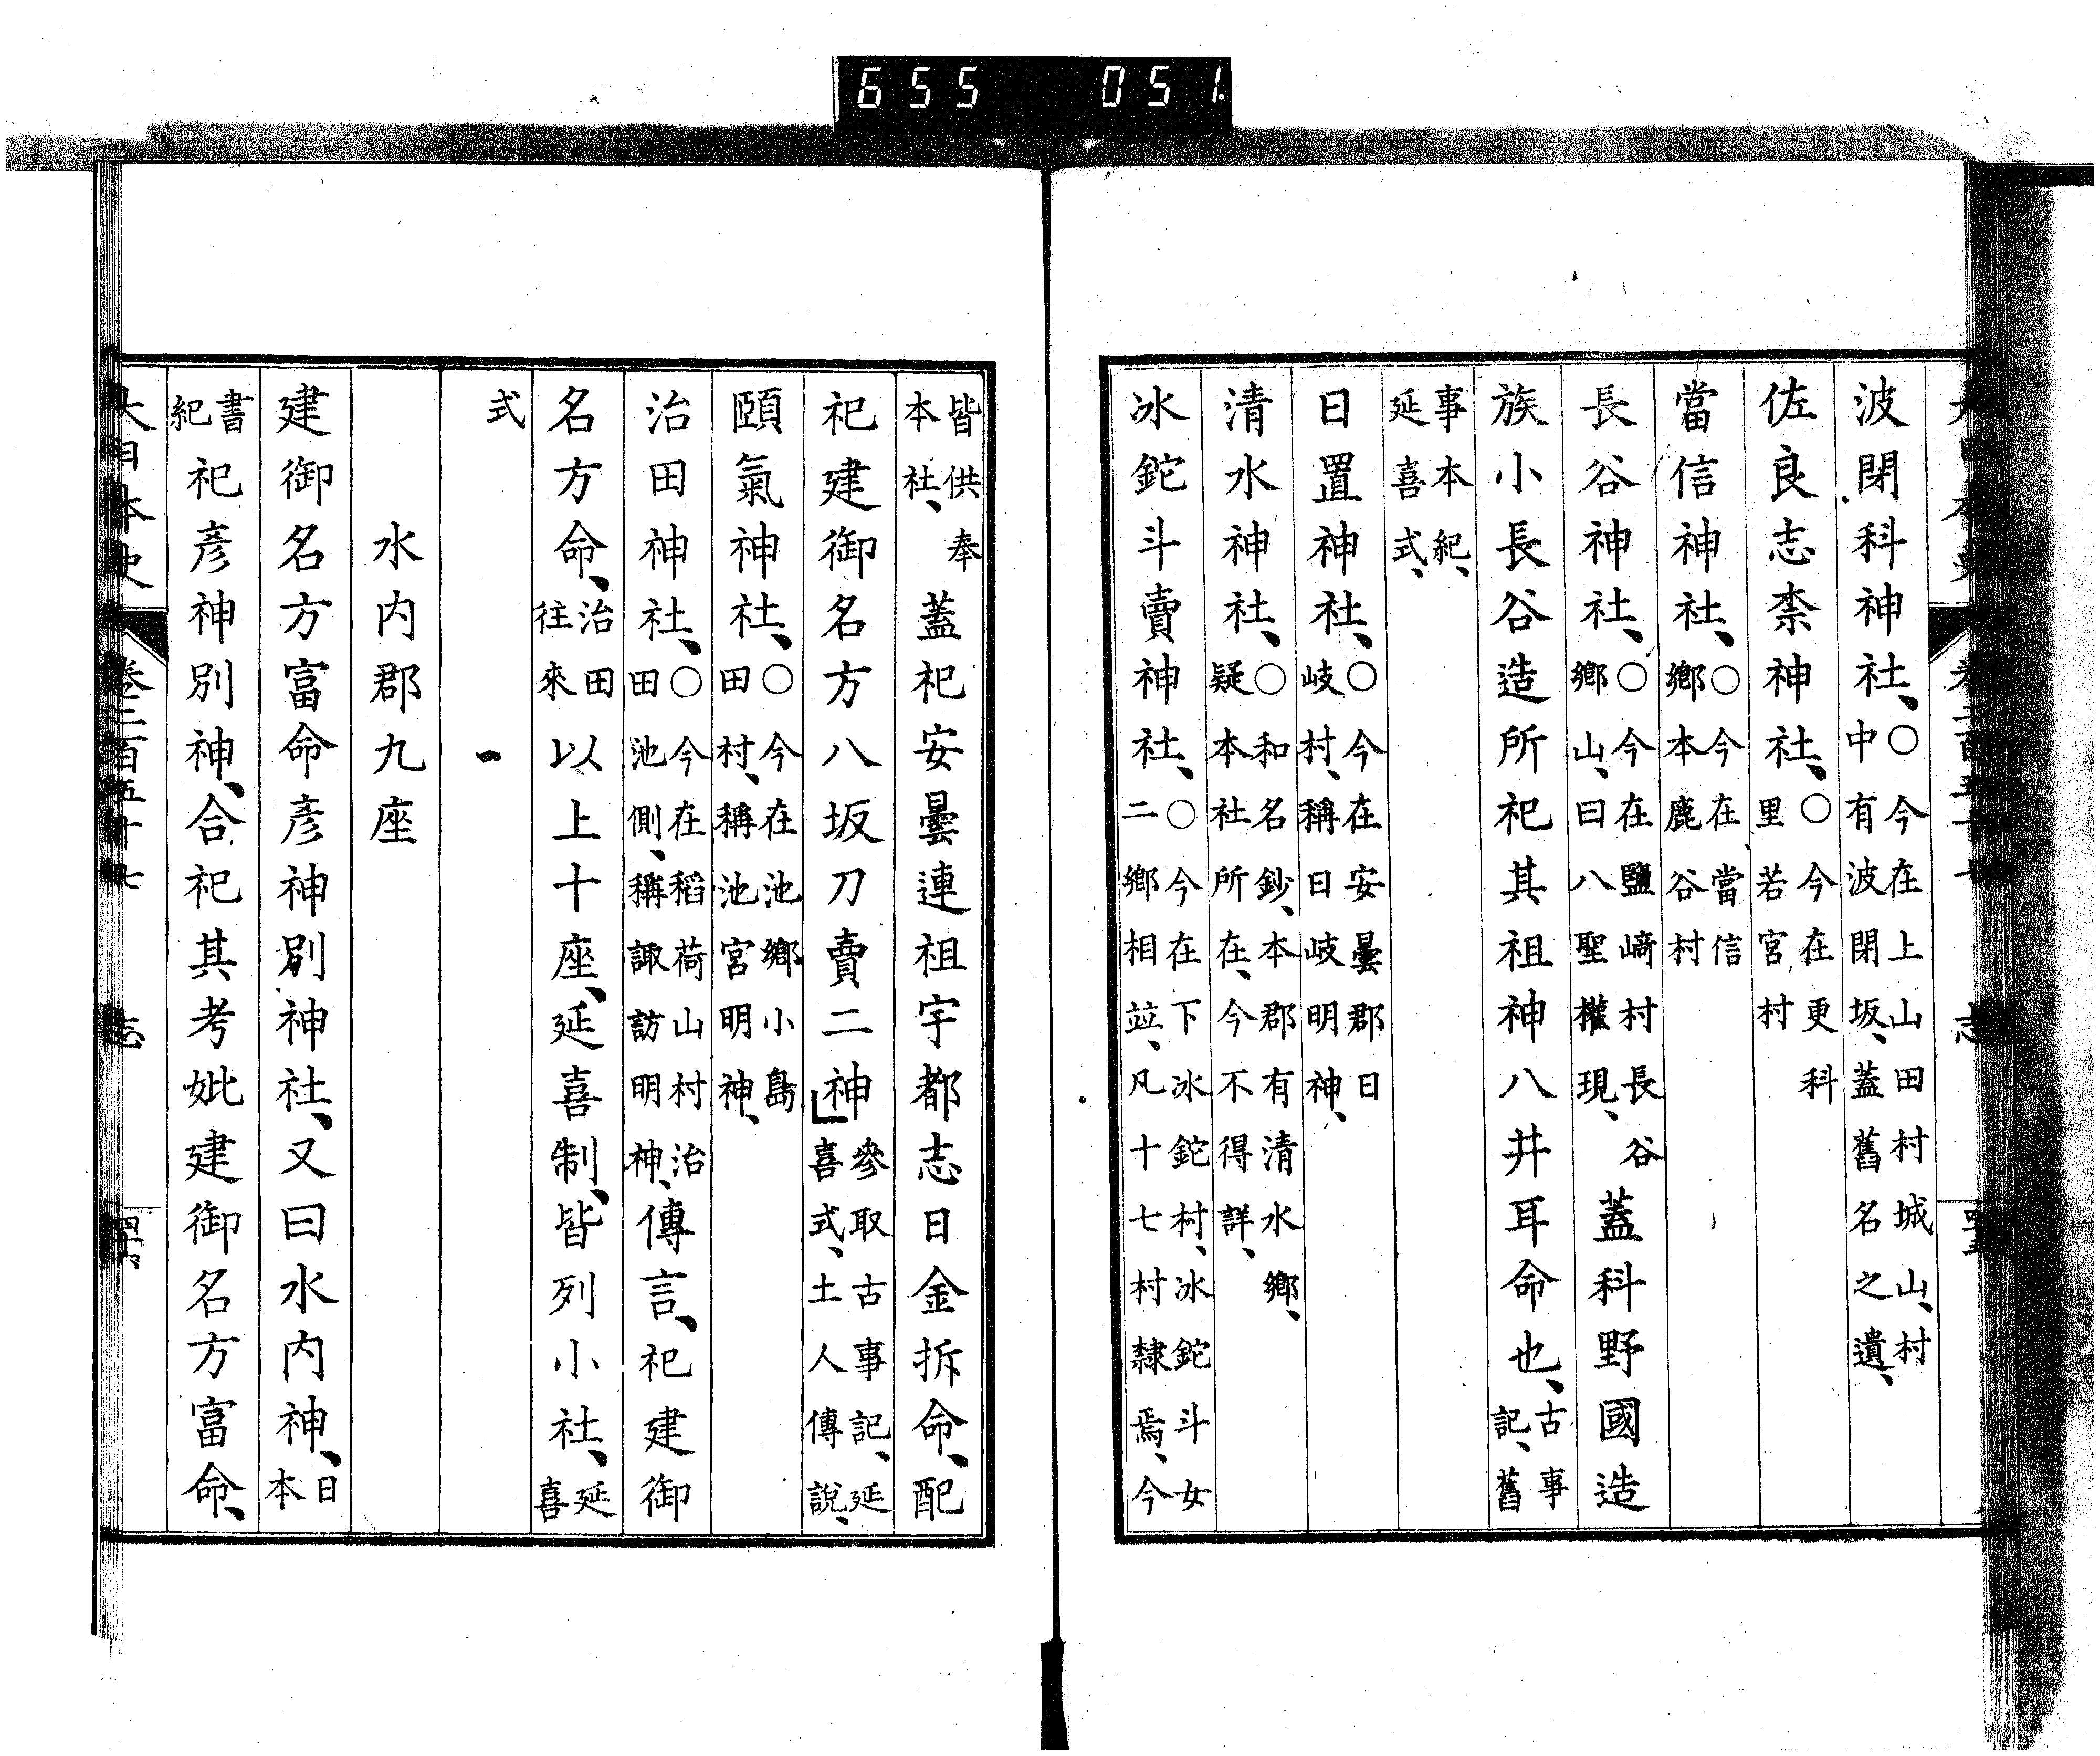 655 051
波閉科神社、○今在上山田村城山、村中有波閉坂、蓋舊名之遺、
佐良志柰神社、○今在更科里若宮村
當信神社、○今在當信鄉本鹿谷村
長谷神社、○今在鹽﨑村長谷鄉山、曰八聖權現、蓋科野國造
族小長谷造所祀其祖神八井耳命也、古事記、舊
事本紀、延喜式、
日置神社、○今在安曇郡日岐村、稱日岐明神、
清水神社、○和名鈔、本郡有清水鄉、疑本社所在、今不得詳、
冰鉈斗賣神社、○今在下冰鉈村、冰鉈斗女二鄉相竝、凡十七村隸焉、今
皆供奉本社、蓋祀安曇連祖宇都志日金拆命、配
祀建御名方八坂刀賣二神參取古事記、延喜式、土人傳說、
頤氣神社、○今在池鄉小島田村、稱池宮明神、
治田神社、○今在稻荷山村治田池側、稱諏訪明神、傳言、祀建御
名方命、治田往來以上十座、延喜制、皆列小社、延喜
式
水內郡九座
建御名方富命彥神別神社、又曰水內神、日本
書紀祀彥神別神、合祀其考妣建御名方富命、
大日本史 卷二百五十七 志